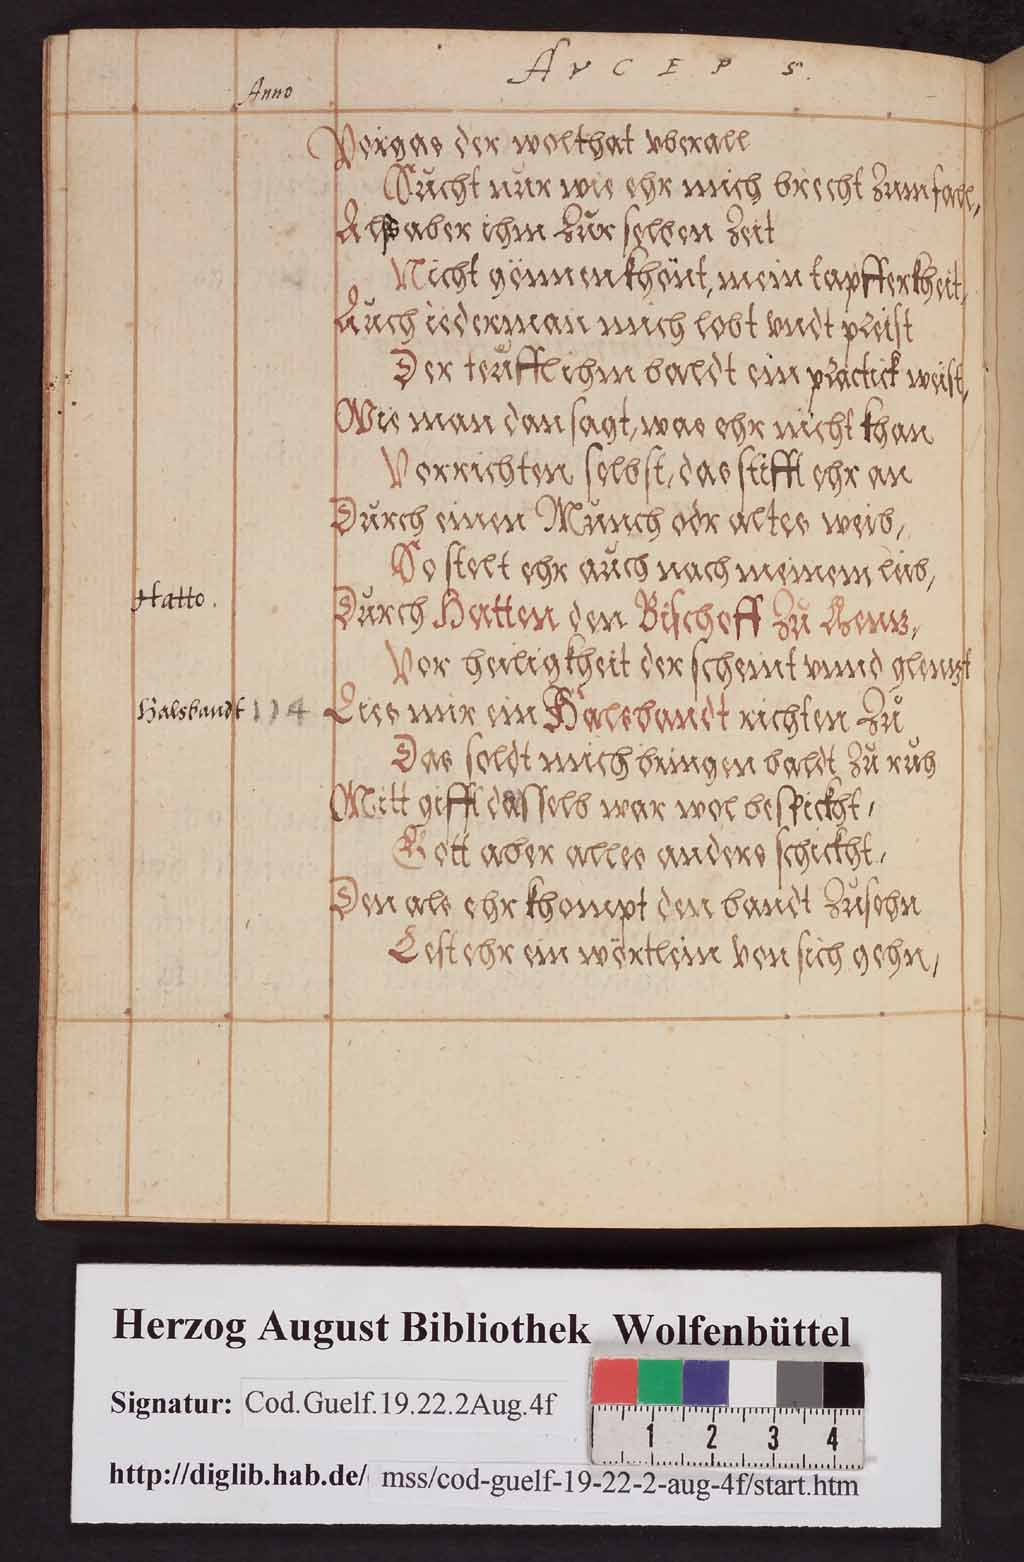 Anno
AVCEPS.
Vergas der wolthat vberall
Sucht nur wie ehr mich brecht zum fahl,
Alß aber ihm zur selben Zeit
Nicht gönnen khönt, mein tapfferkheit,
Auch iederman mich lobt vndt preist
Der teuffl ihm baldt ein practick weist,
Wie man dan sagt, was ehr nicht khan
Verrichten selbst, das stifft ehr an
Durch einen Munch odr altes weib,
So stelt ehr auch nach meinem leib,
Hatto.
Durch Hatten den Bischoff zu Menz,
Vor heiligkheit der scheint vnnd glentzt
Halsbandt 114
Lies mir ein Halsbandt richten zu
Das soldt mich bringen baldt zu ruh
Mitt gifft dasselb war wol bespickht,
Gott aber alles anders schickht,
Den als ehr khompt den bandt zusehn
Lest ehr ein wörtlein von sich gehn,
Herzog August Bibliothek Wolfenbüttel
Signatur: Cod.Guelf.19.22.2Aug.4f
1 2 3 4
http://diglib.hab.de/ mss/cod-guelf-19-22-2-aug-4f/start.htm